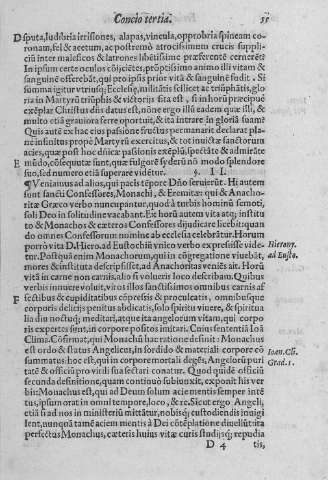 Concio tertia. 55
D sputa, ludibria irrisiones, alapas, vincula, opprobria spineam co-
ronam, fel & acetum, ac postremò atrocissimum crucis suppli-
ciū inter maleficos & latrones libētissime præferentē cernerēt?
In ipsum certe oculos cōijciētes, prōptissimo animo illi vitam &
sanguinē offerebāt, qui pro ipsis prior vitā & sanguinē fudit. Si
summa igitur vtriusq; Ecclesię, militātis scilicet ac triūphātis, glo-
ria in Martyrū triūphis & victorijs sita est, si in horū præcipuè
exēplar Christus dñs datus est, nōne ergo illū eadem quæ illi, &
multo etiā grauiora ferre oportuit, & ita intrare in gloriā suam?
Quis autē ex hac eius passione fructus permanarit declarat pla-
nè infinitus propè Martyrū exercitus, & tot inuictæ sanctorum
acies, quæ post hoc dñicæ passionis exēplū, spectatè & admirātè
E mūdo, cōsequutæ sunt, quæ fulgore syderū nō modo splendore
suo, sed numero etiā superare vidētur. §. II.
¶ Veniamus ad alios, qui pacis tēpore Dño seruierūt. Hi autem
sunt sancti Confessores, Monachi, & Eremitæ: qui & Anacho-
ritæ Græco verbo nuncupantur, quod à turbis hominū semoti,
soli Deo in solitudine vacabant. Ex horū autem vita atq; institu
to & Monachos & cæteros Confessores dijudicare licebit: quan
do omnes Confessorum nomine ab ecclesia celebrātur. Horum
porrò vita D. Hiero. ad Eustochiū vnico verbo expressisse vide-
tur. Postquā enim Monachorum, qui in cōgregatione viuebāt,
mores & instituta descripsisset, ad Anachoritas veniēs ait. Horū
vitā in carne non carnis, alio si voluerit loco describam. Quibus
verbis innuere voluit, viros illos sanctissimos omnibus carnis af
F fectibus & cupiditatibus cōpressis & proculcatis, omnibusque
corporis delicijs penitus abdicatis, solo spiritu viuere, & spiritua
lia diu noctuq; meditari, atque ita angelorum vitam, qui corpo
ris expertes sunt, in corpore positos imitari. Cuius sententiā Ioā
Clima. Cōfirmat, qui Monachū hac ratione definit: Monachus
est ordo & status Angelicus, in sordido & materiali corpore cō
summatus: hoc est, qui in corpore mortali degēs, Angelorū puri
tatē & officiū pro virili sua sectari conatur. Quod quidē officiū
secunda definitione, quam continuò subiunxit, exponit his ver
bis: Monachus est, qui ad Deum solum acie mentis semper inten
tus, ipsum orat in omni tempore, loco, & re. Sicut ergo Angeli,
etiā si ad nos in ministeriū mittātur, nobisq; custodiendi inuigi
lent, nunquā tamē aciem mentis à Dei cōtēplatione diuellūt: ita
perfectus Monachus, cæteris huius vitæ curis studijsq; repudia
D 4 tis,
Hierony.
ad Eusto.
Ioan. Cli.
Grad. 1.